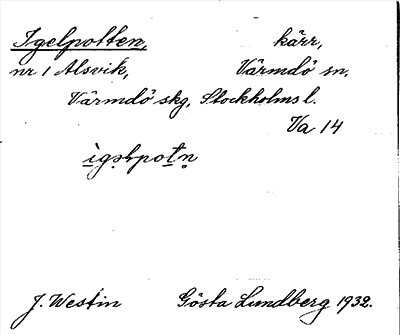 Igelpotten, kärr,
nr 1 Alsvik, Värmdö sn.
Värmdö skg, Stockholms l.
Va 14
J. Westin Gösta Lundberg 1932.